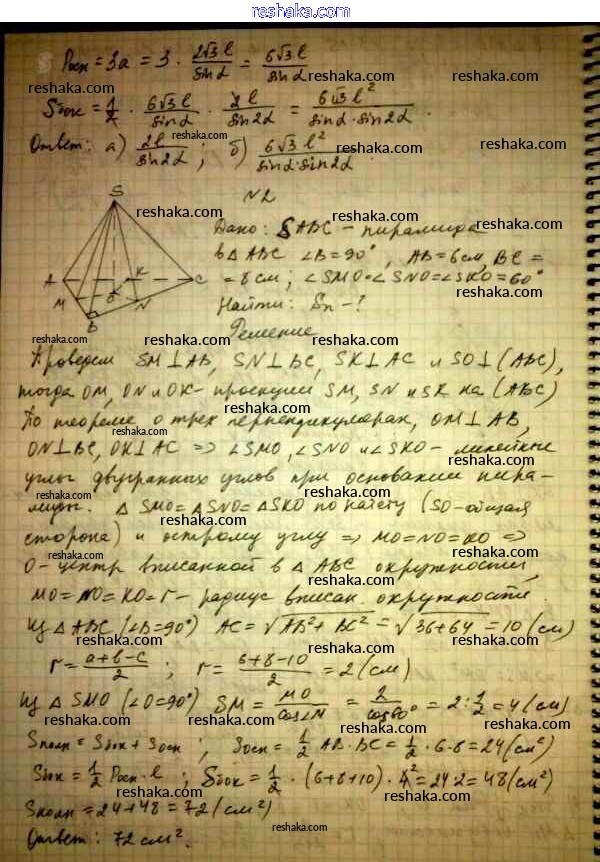 reshaka.com
Pосн = 3a = 3 · 2√3 l / sin α = 6√3 l / sin α
Sбок = 1/2 · 6√3 l / sin α · 2l / sin 2α = 6√3 l² / sin α · sin 2α
Ответ: а) 2l / sin 2α ; б) 6√3 l² / sin α · sin 2α
№2
Дано: SABC – пирамида
в △ABC ∠B = 90°, AB = 6 см, BC =
= 8 см; ∠SMO = ∠SNO = ∠SKO = 60°
Найти: Sп – ?
S
A
M
B
O
K
N
C
Решение
Проведем SM⊥AB, SN⊥BC, SK⊥AC и SO⊥(ABC),
тогда OM, ON и OK – проекции SM, SN и SK на (ABC)
По теореме о трех перпендикулярах, OM⊥AB,
ON⊥BC, OK⊥AC => ∠SMO, ∠SNO и ∠SKO – линейные
углы двугранных углов при основании пира-
миды. △SMO = △SNO = △SKO по катету (SO – общая
сторона) и острому углу => MO = NO = KO =>
O – центр вписанной в △ABC окружности,
MO = NO = KO = r – радиус вписан. окружности.
Из △ABC (∠B = 90°) AC = √AB² + BC² = √36 + 64 = 10 (см)
r = a + b – c / 2 ; r = 6 + 8 – 10 / 2 = 2 (см)
Из △SMO (∠O = 90°) SM = MO / cos∠M = 2 / cos 60° = 2 : 1/2 = 4 (см)
Sполн = Sбок + Sосн ; Sосн = 1/2 AB · BC = 1/2 · 6 · 8 = 24 (см²)
Sбок = 1/2 Pосн · l ; Sбок = 1/2 · (6 + 8 + 10) · 4² = 24 · 2 = 48 (см²)
Sполн = 24 + 48 = 72 (см²)
Ответ: 72 см².